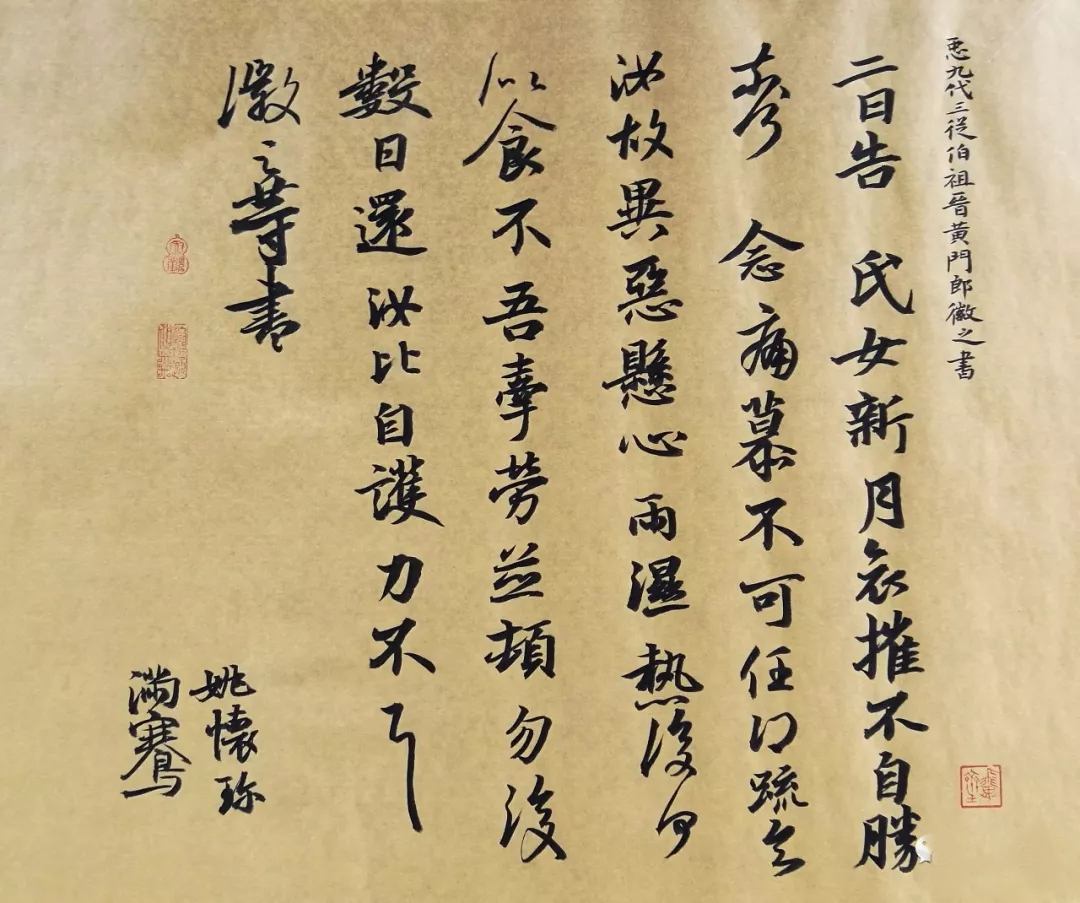 𢘑九代三從伯祖晉黃門郎徽之書
二日告 氏女新月哀摧不自勝
奈何 念痛慕不可任得疏知
汝故異惡懸心雨濕熱復何
似食不吾牽勞並頓勿復
數日還汝比自護力不具
徽之等書
姚懷珍
滿騫